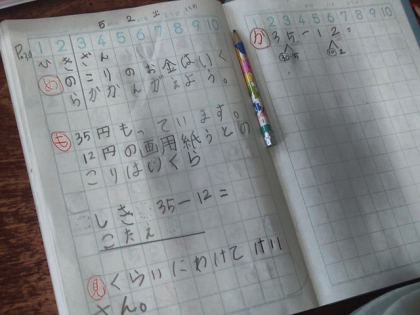 5 2 土
1 2 3 4 5 6 7 8 9 10
ひきざん
め のこりのお金はいく
らかかんがえよう。
も 35円もっています。
12円の画用紙うとの
こりはいくら
しき 35-12=
こたえ
見 くらいにわけてけい
さん。
1 2 3 4 5 6 7 8 9 10
か 35-12=
30 5 10 2